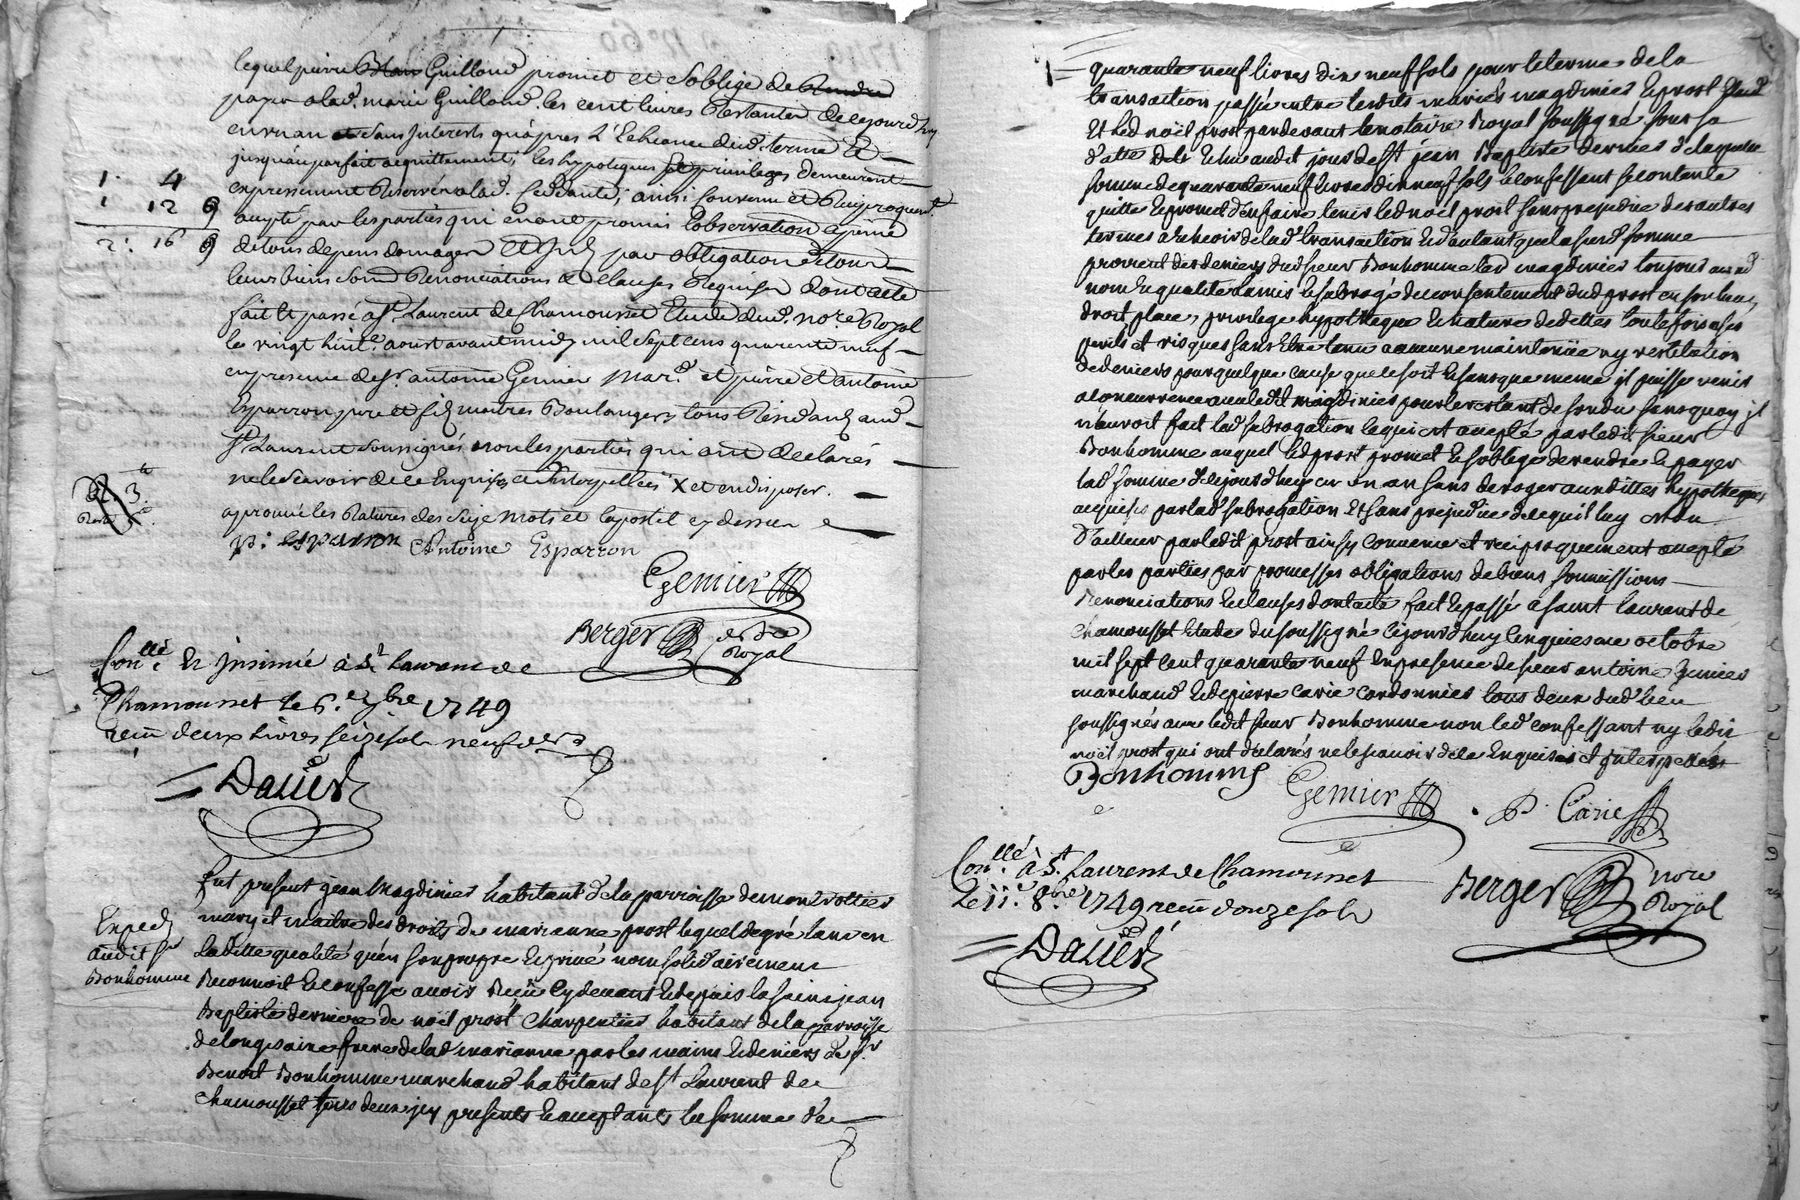 lequel pierre Guilloud promet et s'oblige de
payer a lad. marie Guilloud les cent livres restantes de ce jourdhuy
en un an sans Interests qu'apres l'Echeance dud. terme Et
jusqu'au parfait acquittement, les hypoteques et privileges demeurant
1. 4
expressement Reservé a lad. Cedante; ainsi convenu et Reciproquem.t
1 12 9
accepté par les parties qui en ont promis l'observation a peine
2: 16 9
de tous depens domages par obligation de tous
leurs biens Renonciations & clauses Requises dont acte
fait et passé a St. Laurent de Chamousset Etude dud. no.re Royal
le vingt huit.e aoust avant midy mil sept cens quarente neuf
en presence de Sr. antoine Gemier mar.d et pierre et antoine
Esparron pere et fils maitres Boulangers tous Residants aud.
St. Laurent soussignés non les parties qui ont declarés
ne le scavoir de ce Enquises et Interpellées X et en disposer.
aprouvé les Ratures des mots et l'apostil cy dessus
p: esparron Antoine Esparron
Gemier
Berger no.re Royal
Con.llé Et Insinué à St. Laurent de
Chamousset le 6.e 7bre 1749
reçu deux livres seize sols neuf den.
Dalier
fut present jean magdinier habitant de la parroisse de montrottier
mary et maitre des droits de marianne prost lequel de gré tant en
Exped.
Laditte qualité qu'en son propre et privé nom solidairement
audit Sr
Bonhomme
Reconnoit et confesse avoir Reçu cydevant et depuis la saint jean
Baptiste derniere de noël prost charpentier habitant de la parroisse
de longesaine frere de lad. marianne par les mains et deniers de sr
Benoit Bonhomme marchand habitant de St Laurent de
chamousset tous deux icy presents et acceptants la somme de
quarante neuf livres dix neuf sols pour le terme de la
transaction passée entre lesdits mariés magdinier et prost
Et led noël prost pardevant le notaire Royal soussigné sous sa
d'atte de la et echue audit jour de st jean Baptiste dernier de laquelle
somme de quarante neuf livres dix neuf sols le confessant se contente
quitte et promet d'en faire tenir led noël prost sans prejudice des autres
termes a echeoir de lad. transaction et d'autant que la sus.d somme
provient des deniers dud sieur Bonhomme led magdinier toujours aud
nom et qualité la mis et subrogé du consentement dud prost en son lieu,
droit place, privilege hypotheque et nature de dettes toutefois a ses
perils et risques sans etre tenu a aucune maintenüe ny restitution
de deniers pour quelque cause que ce soit et sans que meme il puisse venir
a concurrence avec ledit magdinier pour le restant de son du sans quoy il
n'auroit fait lad subrogation laquelle ont accepté par ledit sieur
Bonhomme auquel led prost promet et s'oblige de rendre et payer
lad somme de ce jourd'huy en un an sans deroger auxdittes hypotheques
acquises par lad subrogation Et sans prejudice de ce qui luy est du
d'ailleur par ledit prost ainsy convenu et reciproquement accepté
par les parties par promesses obligations de biens soumissions
Renonciations et clauses dont acte fait et passé a saint laurent de
Chamousset Etude du soussigné ce jourd'huy cinquiesme octobre
mil sept cent quarante neuf En presence de sieur antoine Gemier
marchand et de pierre carie cordonnier tous deux dud lieu
soussignés avec ledit sieur Bonhomme non led confessant ny ledit
noël prost qui ont declarés ne le scavoir de ce Enquises et Interpellés
Bonhomme Gemier P. Carie
Con.llé à St. Laurent de Chamousset
Le 11.e 8bre 1749 reçu douze sols
Berger no.re Royal
Dalier